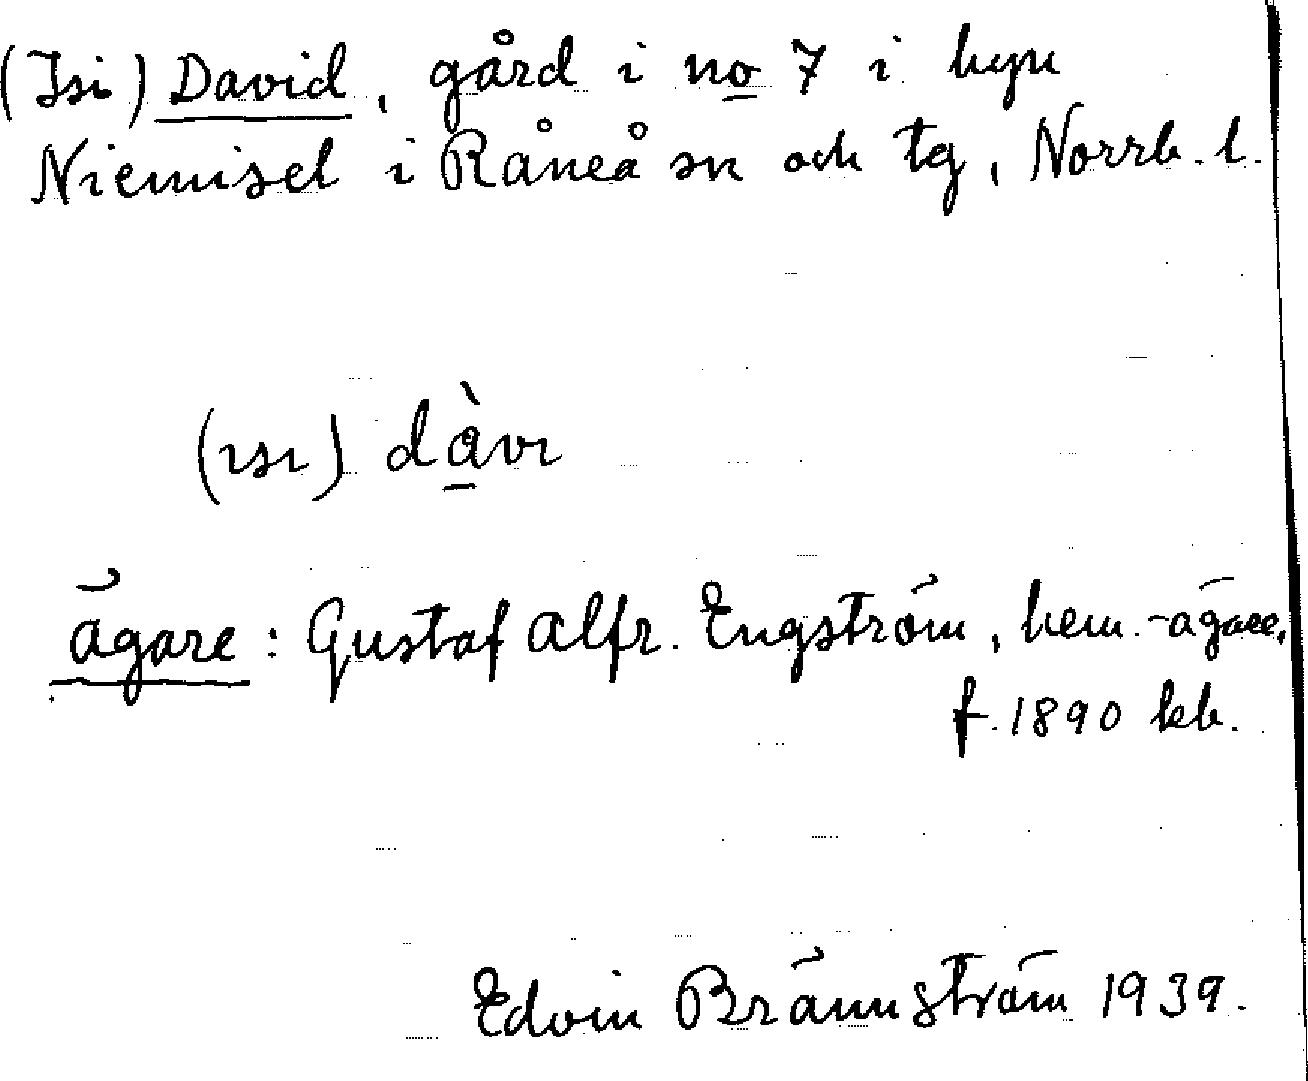 (Isi) David, gård i no 7 i byn
Niemisel i Råneå sn och tg, Norrb. l.
(ısı) dàvı
ägare: Gustaf Alfr. Engström, hem.-ägare,
f. 1890 kb.
Edvin Brännström 1939.